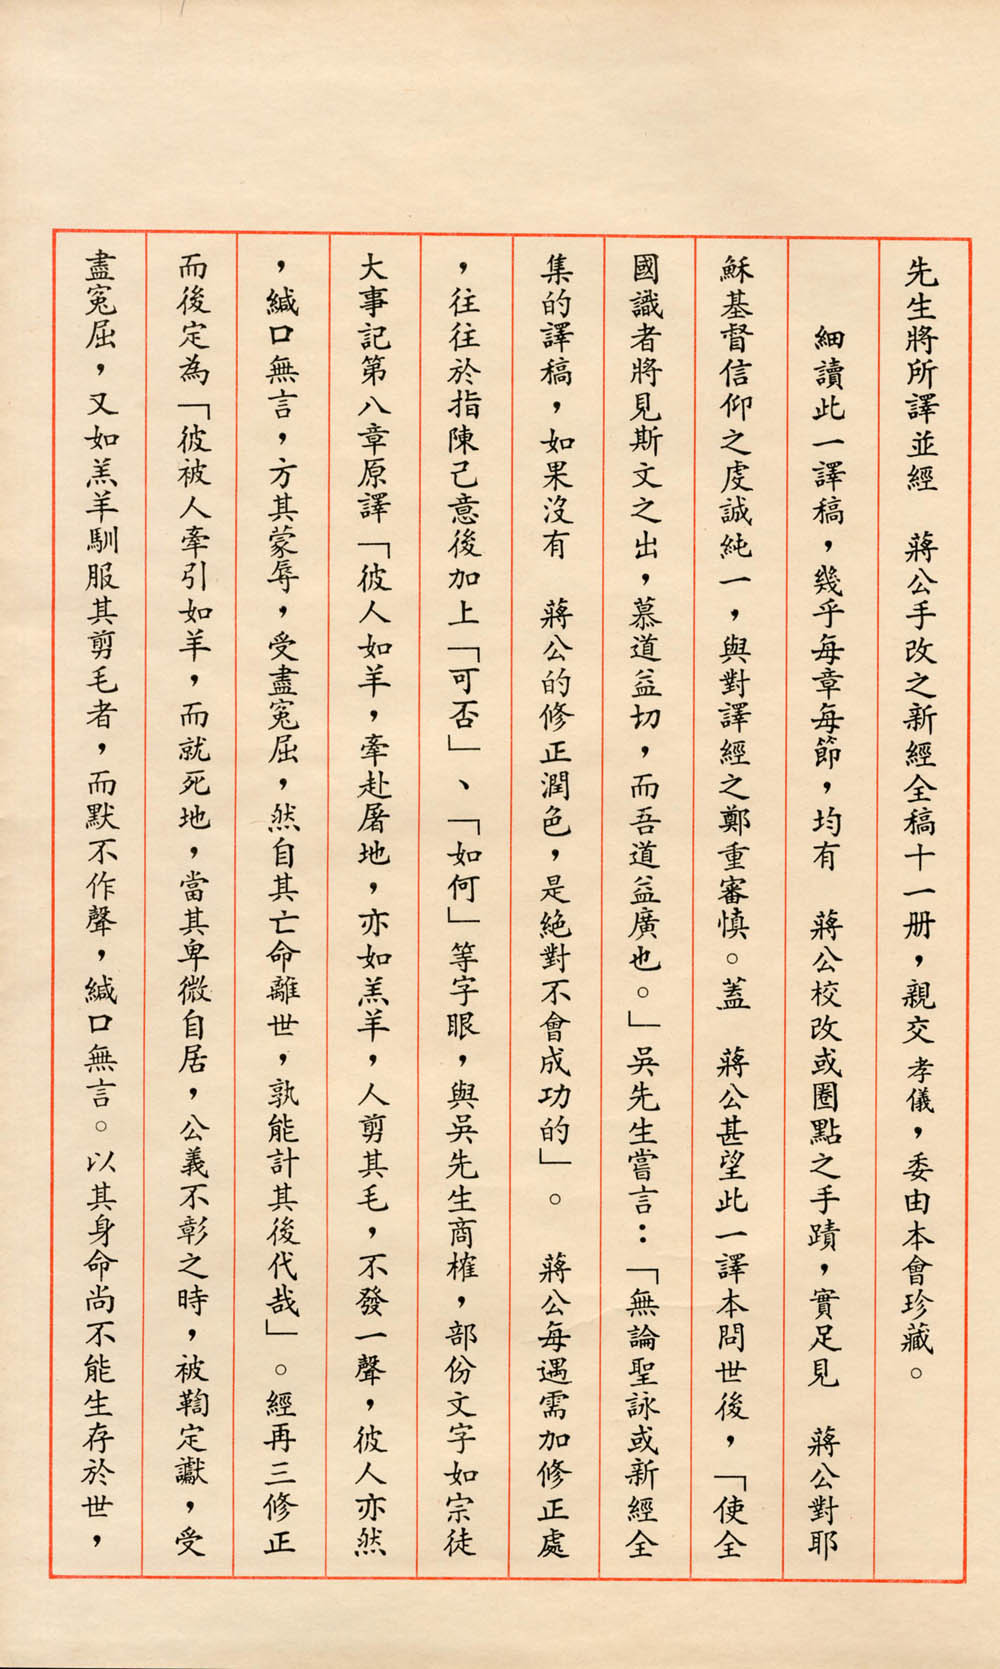 先生將所譯並經　蔣公手改之新經全稿十一册，親交孝儀，委由本會珍藏。
細讀此一譯稿，幾乎每章每節，均有　蔣公校改或圈點之手蹟，實足見　蔣公對耶
穌基督信仰之虔誠純一，與對譯經之鄭重審慎。蓋　蔣公甚望此一譯本問世後，「使全
國識者將見斯文之出，慕道益切，而吾道益廣也。」吳先生嘗言：「無論聖詠或新經全
集的譯稿，如果沒有　蔣公的修正潤色，是絕對不會成功的」。　蔣公每遇需加修正處
，往往於指陳己意後加上「可否」、「如何」等字眼，與吳先生商榷，部份文字如宗徒
大事記第八章原譯「彼人如羊，牽赴屠地，亦如羔羊，人剪其毛，不發一聲，彼人亦然
，緘口無言，方其蒙辱，受盡冤屈，然自其亡命離世，孰能計其後代哉」。經再三修正
而後定為「彼被人牽引如羊，而就死地，當其卑微自居，公義不彰之時，被鞫定讞，受
盡冤屈，又如羔羊馴服其剪毛者，而默不作聲，緘口無言。以其身命尚不能生存於世，